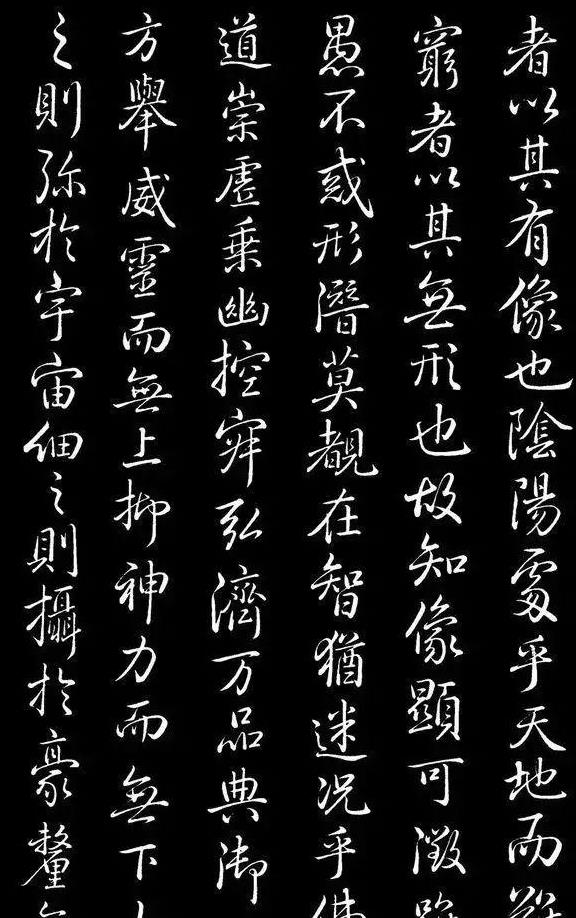 者以其有像也陰陽處乎天地而
窮者以其無形也故知像顯可徵
愚不惑形潛莫覩在智猶迷况乎
道崇虛乘幽控寂弘濟万品典御
方舉威靈而無上抑神力而無下
之則弥於宇宙細之則攝於豪釐